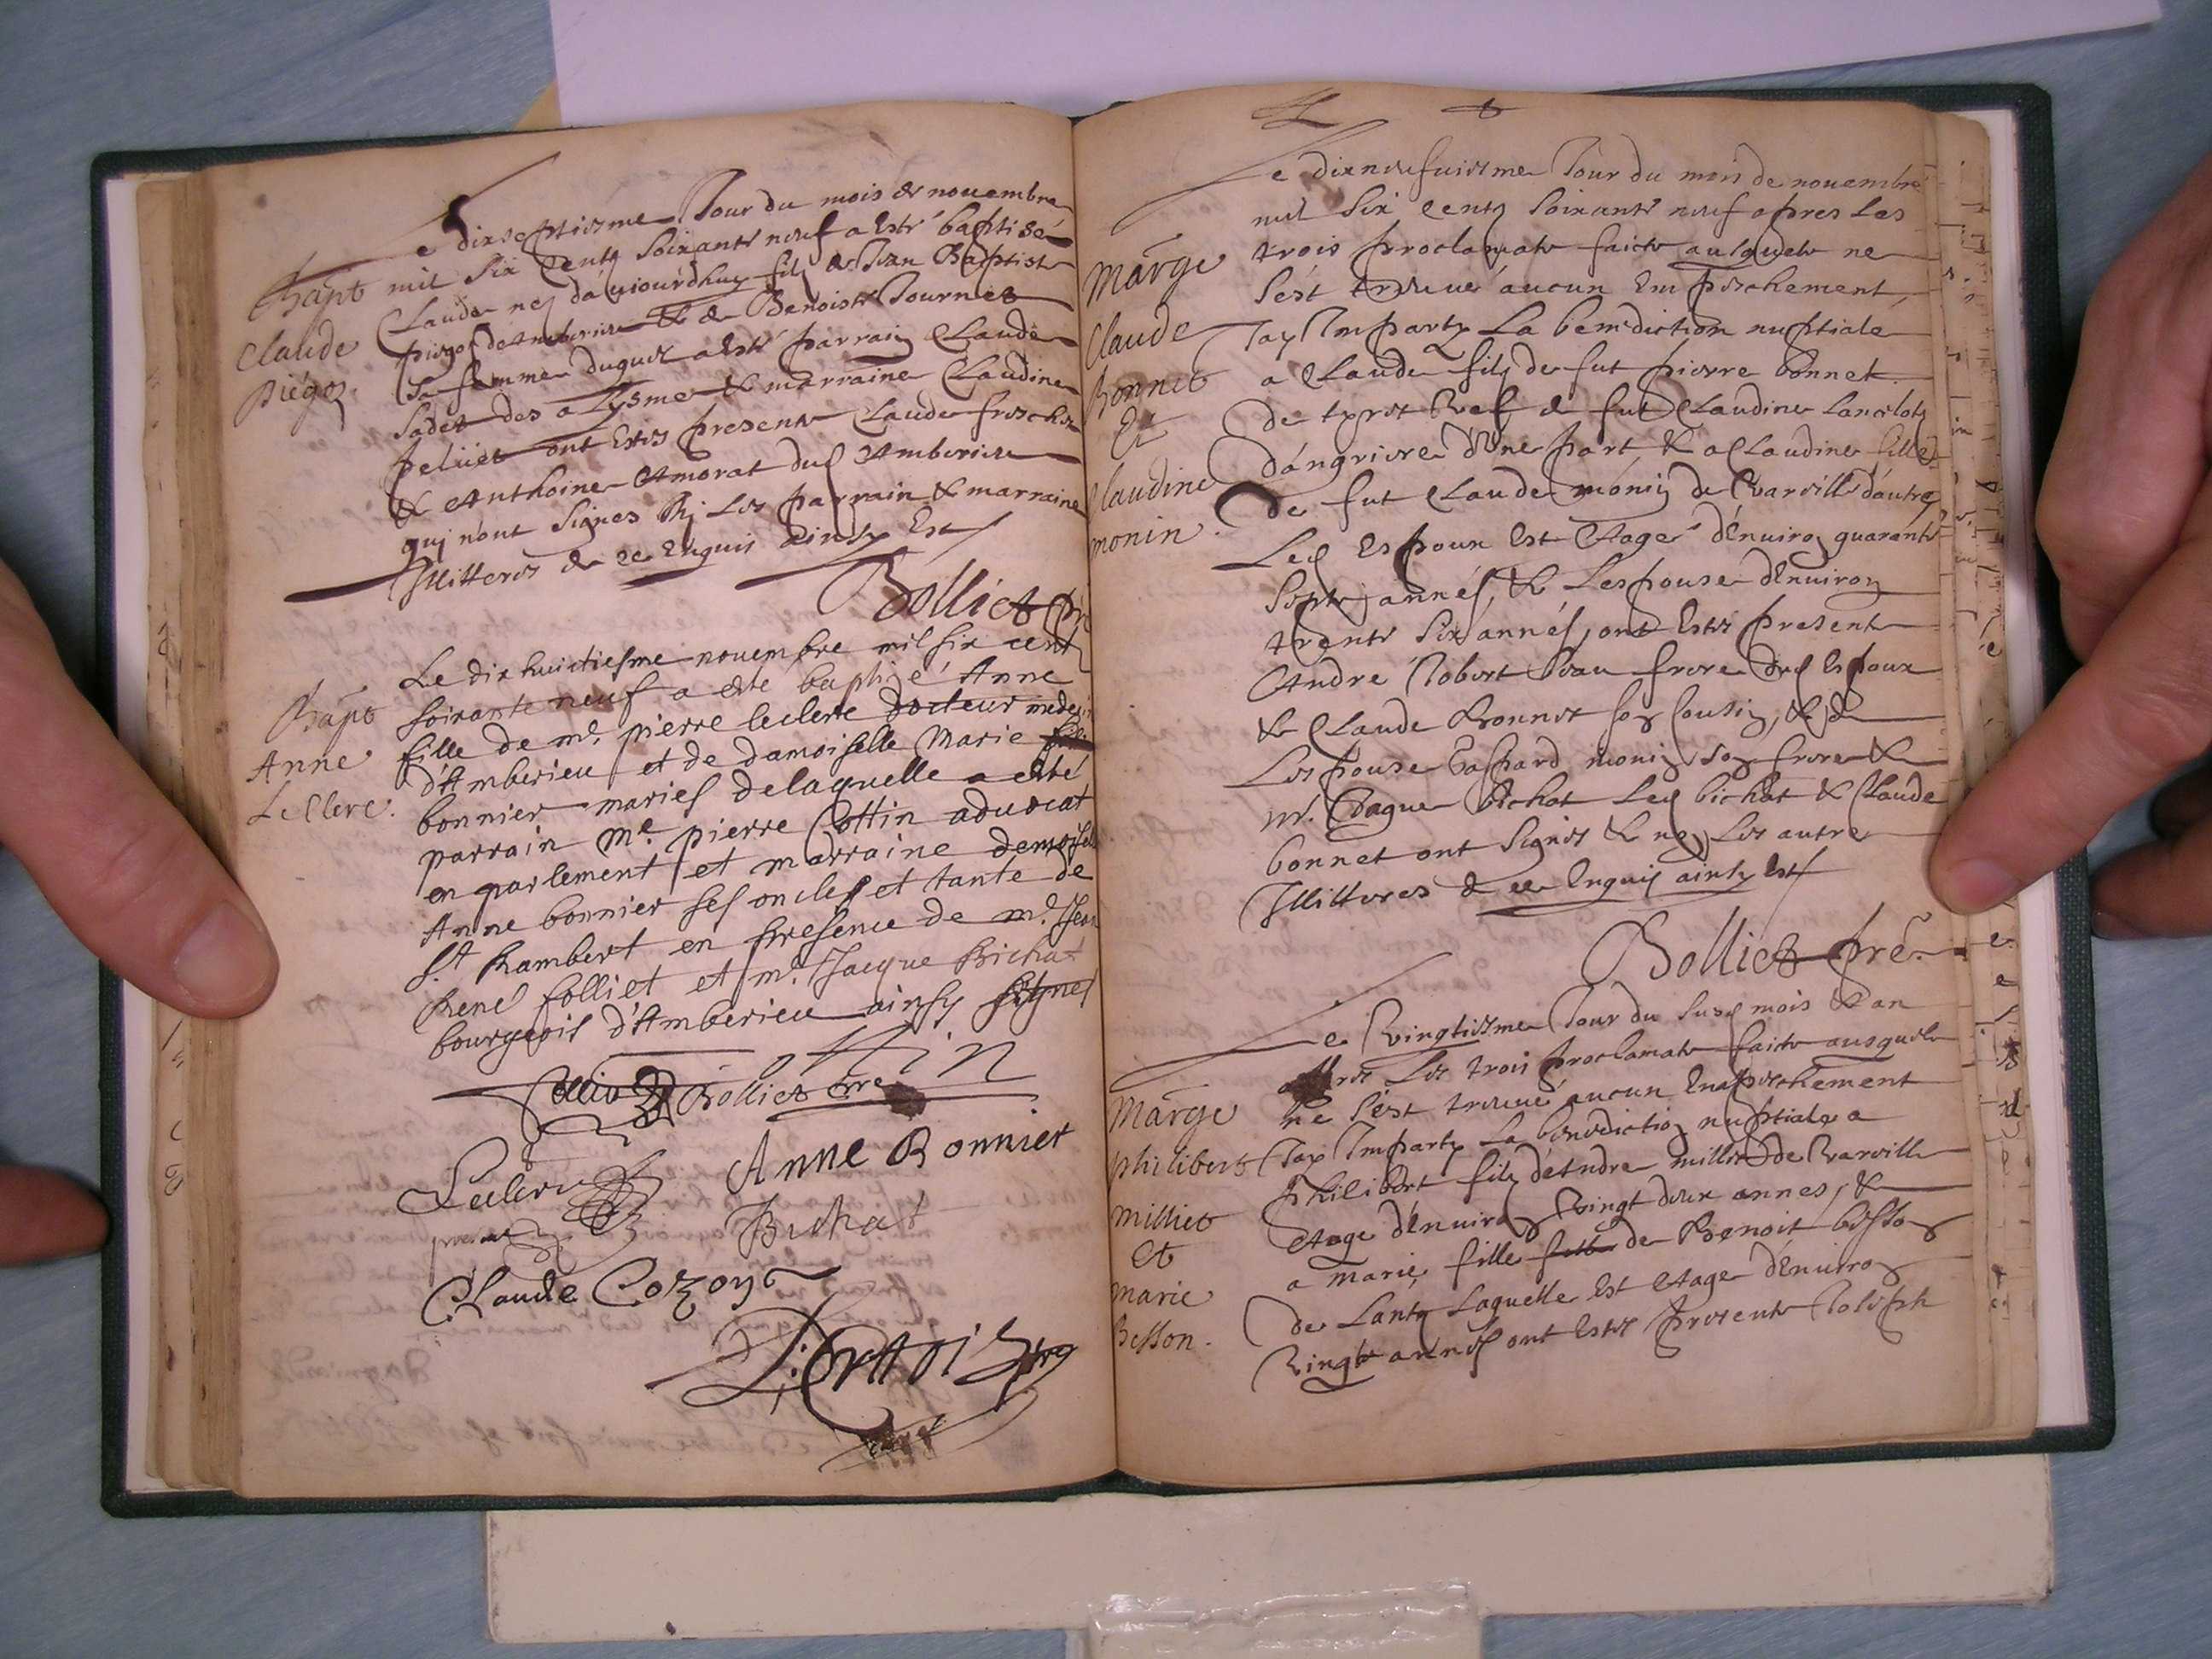 Le dixseptiesme Jour du mois de nouembre
mil six cents soixante neuf a esté baptisé
Claude né daujourdhuy fils de Jean Baptiste
de Benoiste Journet
sa femme duquel a esté parrain Claude
& marraine Claudine
ont estés presents Claude
& Anthoine Amorat dud Amberieu
qui n'ont signés ny les parrain & marraine
Illitteres de ce enquis ainsy est
Bolliet
Bapt
Claude
piégoz
Le dix huictiesme nouembre mil six cent
soixante neuf a esté baptizé Anne
fille de me. pierre leclerc docteur medecin
d'Amberieu et de damoiselle Marie
bonnier maries delaquelle a esté
parrain Me. pierre Cottin aduocat
en parlement et marraine demoiselle
Anne bonnier ses oncles et tante de
St. Rambert en presence de me. Jean
Rene folliet et me. Jacque Bichat
bourgeois d'Amberieu ainsy signes
Bapt
Anne
LeClerc.
Cottin
Bolliet pre
Leclerc
Anne Bonnier
Bichat
Claude Cozon
Le dixneufuiesme Jour du mois de nouembre
mil six cents soixante neuf apres les
trois proclamats faicts ausquels ne
s'est trouué aucun Empeschement
Jay Imparty La benediction nuptiale
a Claude fils de fut pierre bonnet
de & fut Claudine Lancelot
d'angrieres d'une part & a Claudine fille
de fut Claude monin de Varville d'autre
Led Espoux est Aagé d'enuiron quarante
sept années, & Lespouse d'enuiron
trente six années, ont estés presents
André Robert beau frere dud Espoux
& Claude Bonnet son Cousin, & de
Lespouse Gaspard monin son frere &
mr. Jaque bichat Led bichat & Claude
bonnet ont signés & non les autres
Illitteres de ce enquis ainsy est
Bolliet pre
Marge
Claude
Bonnet
Et
Claudine
monin.
Le Vingtiesme Jour du susd mois & an
apres Les trois proclamats faicts ausquels
ne s'est trouué aucun Empeschement
Jay Imparty La benediction nuptiale a
philibert fils d'Andre milliet de Varville
Aage d'enuiron Vingt deux annes, &
a marie fille de Benoit besson
de Lantz Laquelle est Aage d'enuiron
Vingt annes ont estés presents Joseph
Marge
philibert
milliet
Et
marie
Besson.